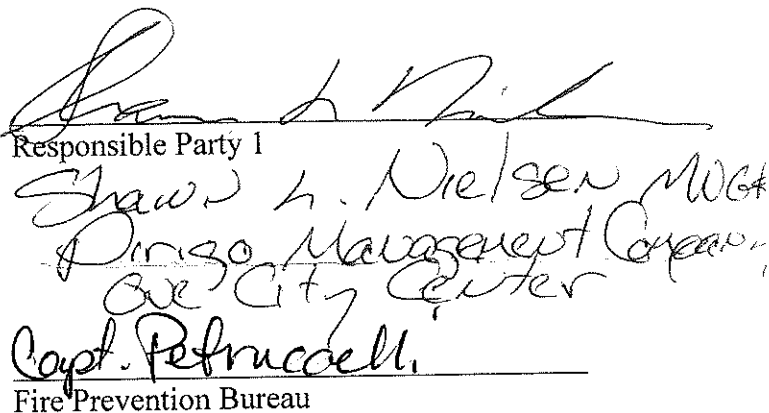 Shawn L. Nielsen
Responsible Party 1
Shawn L. Nielsen
Dirigo Management Company
One City Center
Capt. Petruccelli
Fire Prevention Bureau